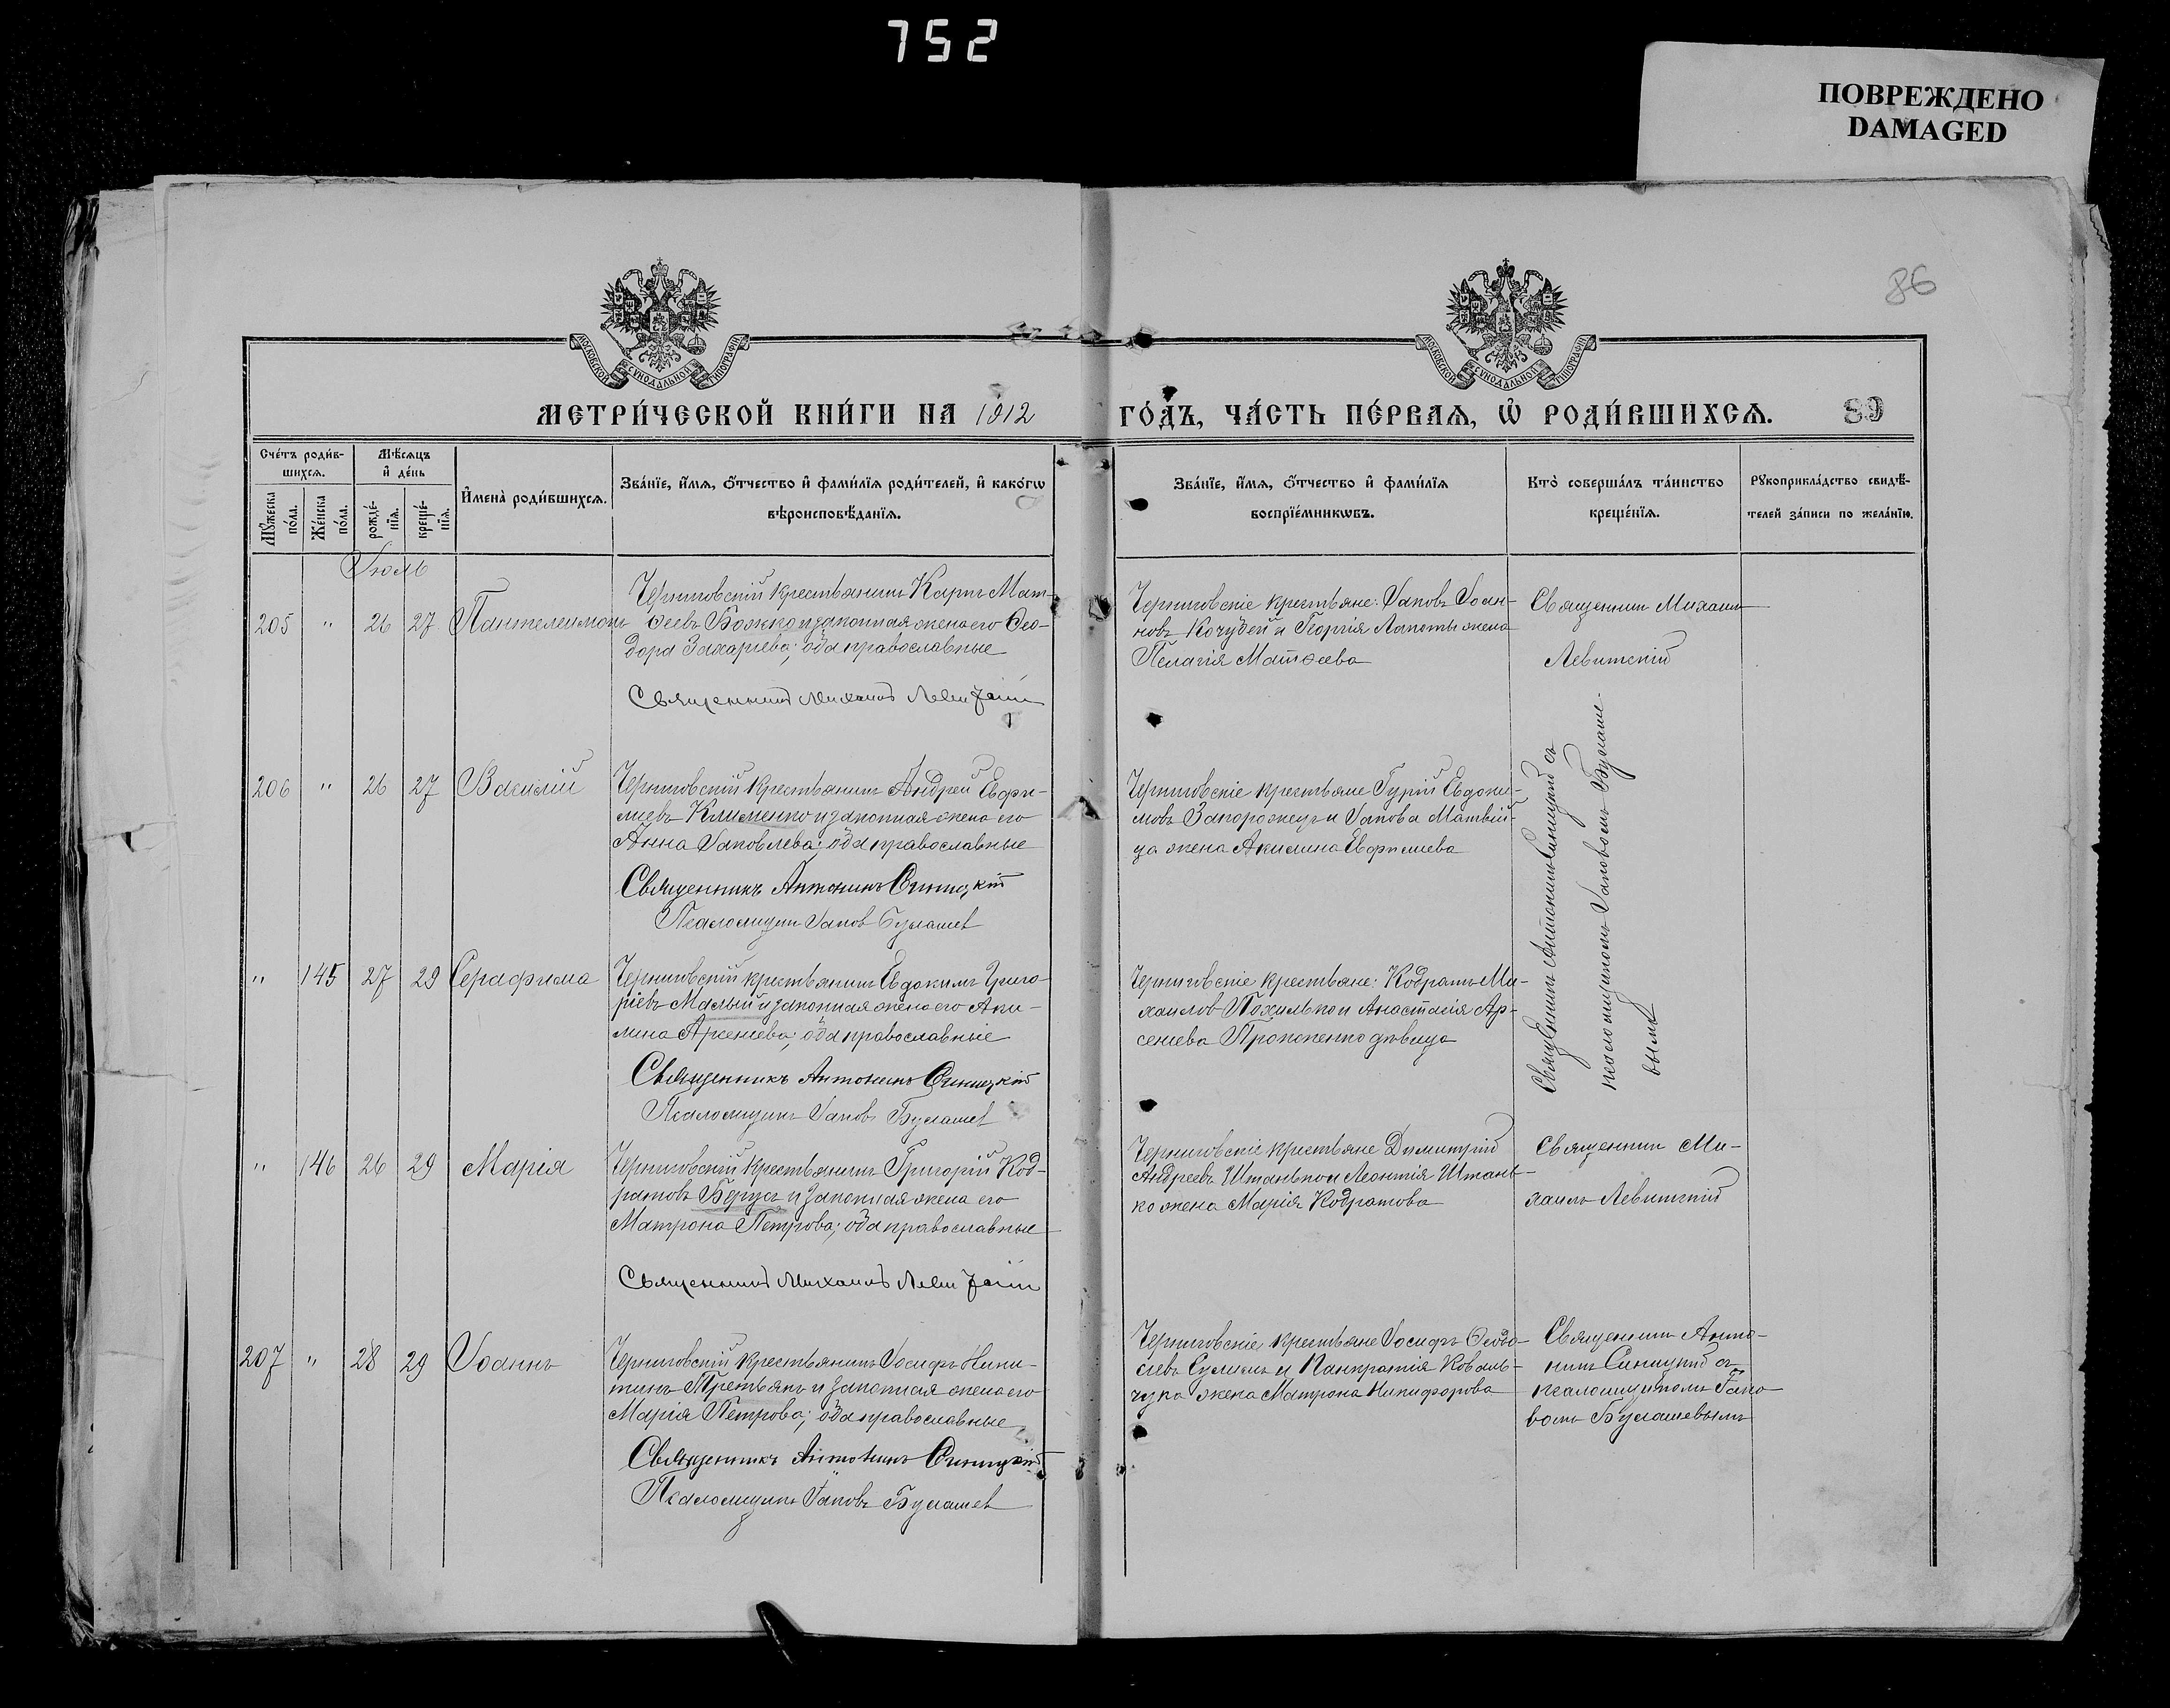 752
ПОВРЕЖДЕНО
DAMAGED
86
МОСКОВСКОЙ СѴНОДАЛЬНОЙ ТИПОГРАФІИ
МОСКОВСКОЙ СѴНОДАЛЬНОЙ ТИПОГРАФІИ
МЕТРИ́ЧЕСКОЙ КНИ́ГИ НА 1912
ГО́ДЪ, ЧА́СТЬ ПЕ́РВАѦ, Ѡ҆ РОДИ́ВШИХСѦ.
89
Сче́тъ роди́в-
шихсѧ.
Мѣ́сѧцъ
и҆ де́нь
Мꙋ́жеска
по́ла.
Же́нска
по́ла.
рожде́-
нїѧ.
креще́-
нїѧ.
И҆мена̀ роди́вшихсѧ.
Зва́нїе, и҆́мѧ, ѻ҆́тчество и҆ фами́лїѧ роди́телей, и҆ како́гѡ
вѣроисповѣ́данїѧ.
Зва́нїе, и҆́мѧ, ѻ҆́тчество и҆ фами́лїѧ
воспрїе́мникѡвъ.
Кто̀ соверша́лъ та́инство
креще́нїѧ.
Рꙋкоприкла́дство свидѣ́-
телей за́писи по жела́нїю.
Іюль
205 " 26 27 Пантелеимонъ
Черниговскій крестьянинъ Карпъ Мат-
ѳеевъ Божко и законная жена его Ѳео-
дора Захаріева; оба православные
Священникъ Михаилъ Левитскій
Черниговскіе крестьяне: Іаковъ Іоан-
новъ Кочубей и Георгія Лапоты жена
Пелагія Матѳеева
Священникъ Михаилъ
Левитскій
206 " 26 27 Василій
Черниговскій крестьянинъ Андрей Евфи-
міевъ Клименко и законная жена его
Анна Іаковлева; оба православные
Священникъ Антонинъ Синицкій
Псаломщикъ Іаковъ Булашев
Черниговскіе крестьяне Гурій Евдоки-
мовъ Запорожецъ и Іакова Матвій-
ца жена Акилина Евфиміева
Священникъ Антонинъ Синицкій съ
псаломщикомъ Іаковомъ Булаше-
вымъ
" 145 27 29 Серафима
Черниговскій крестьянинъ Евдокимъ Григо-
ріевъ Малый и законная жена его Аки-
лина Арсеніева; оба православніе
Священникъ Антонинъ Синицкій
Псаломщикъ Іаковъ Булашев
Черниговскіе крестьяне: Кодратъ Ми-
хаилов Похилько и Анастасія Ар-
сеніева Прокопенко дѣвица
" 146 26 29 Марія
Черниговскій крестьянинъ Григорій Код-
ратовъ Берусъ и законная жена его
Матрона Петрова; оба православные
Священникъ Михаилъ Левитскій
Черниговскіе крестьяне Димитрій
Андреевъ Штанько и Леонтія Штань-
ко жена Марія Кодратова
Священникъ Ми-
хаилъ Левитскій
207 " 28 29 Іоаннъ
Черниговскій крестьянинъ Іосифъ Ники-
тинъ Третьякъ и законная жена его
Марія Петрова; оба православные
Священникъ Антонинъ Синицкій
Псаломщикъ Іаковъ Булашев
Черниговскіе крестьяне Іосифъ Ѳеодо-
сіевъ и Панкратія Коваль-
чука жена Матрона Никифорова
Священникъ Анто-
нинъ Синицкій съ
псаломщикомъ Іако-
вомъ Булашевымъ